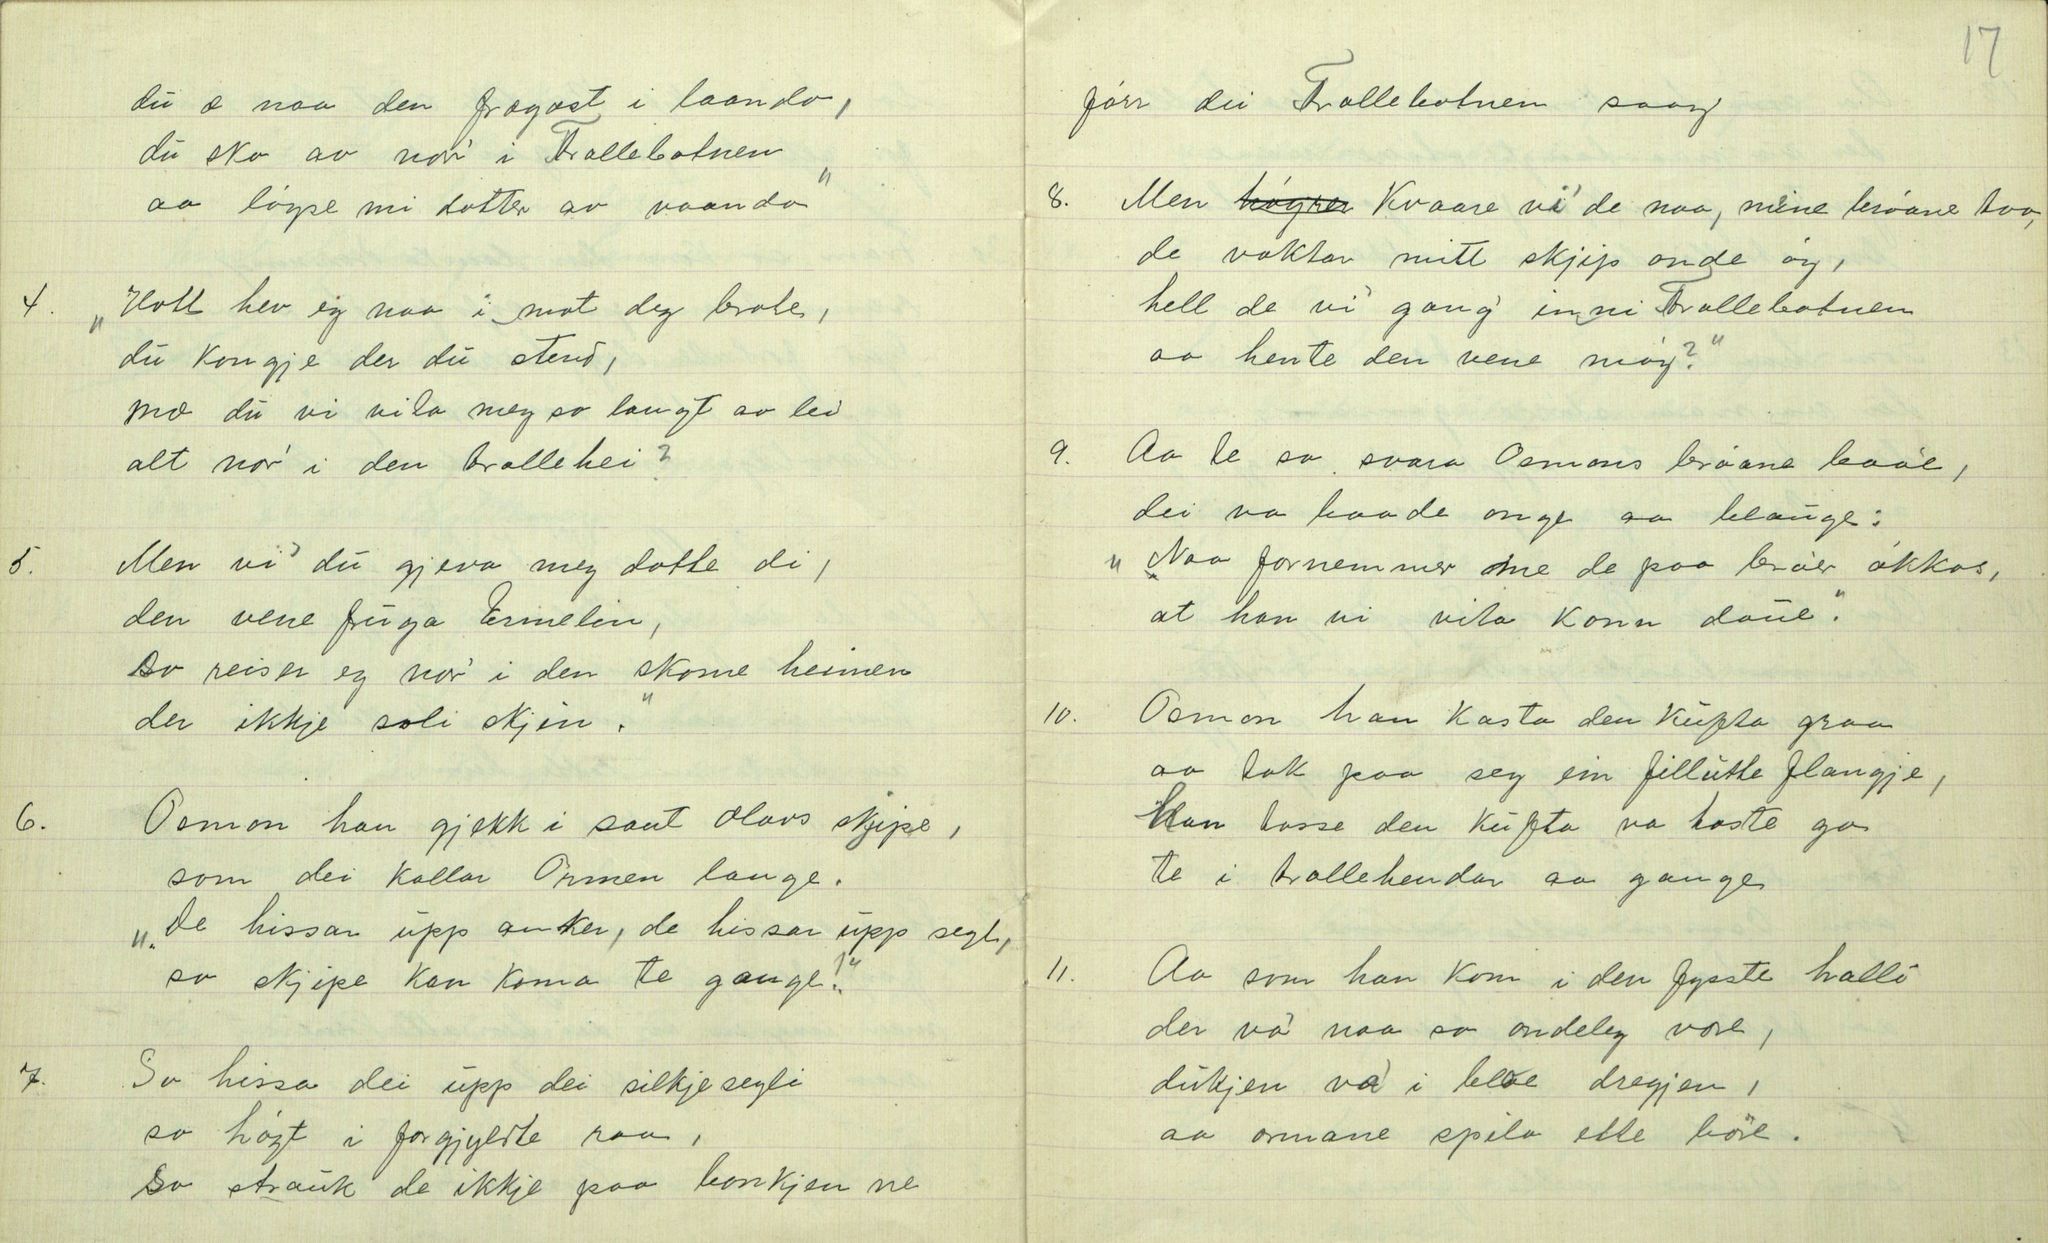 du æ naa den frægast i laando,
du ska av nor' i Trallebotnen
aa löyse mi dotter av vaando"
4. „Hott hev eg naa i mot deg brote,
du kongje der du stend,
mæ du vi vila meg so langt av lei
alt nor' i den trallehei?
5. Men vi' du gjeva meg dotte di,
den vene fruga Ermelin,
so reiser eg nor' i den skome heimen
der ikkje soli skjin."
6. Osmon han gjekk i sant Olavs skjipe,
som dei kallar Ormen lange.
„De hissar upp anker, de hissar upp segl,
so skjipe kan koma te gange!"
7. So hissa dei upp dei silkjesegli
so högt i forgjyldte raa,
So strauk de ikkje paa bonkjen ne
17
förr dei Trallebotnen saag
8. Men högrer Kvaare vi' de naa, mine bröane två,
de vaktar mitt skjip onde öy,
hell de vi' gang' inni Trallebotnen
aa hente den vene möy?"
9. Aa te so svara Osmons bröane baae,
dei va baade onge aa blauge:
„Naa fornemmer me de paa bröer ökkos,
at han vi vila konn daue".
10. Osmon han kasta den kufta graa
aa tok paa seg ein fillutte flangje,
Han tosse den kufta va toste go
te i trallehendar aa gange
11. Aa som han kom i den fysste halli
der va' naa so ondeleg vore,
dukjen va' i bloe dregjen,
aa ormane spila ette bore.